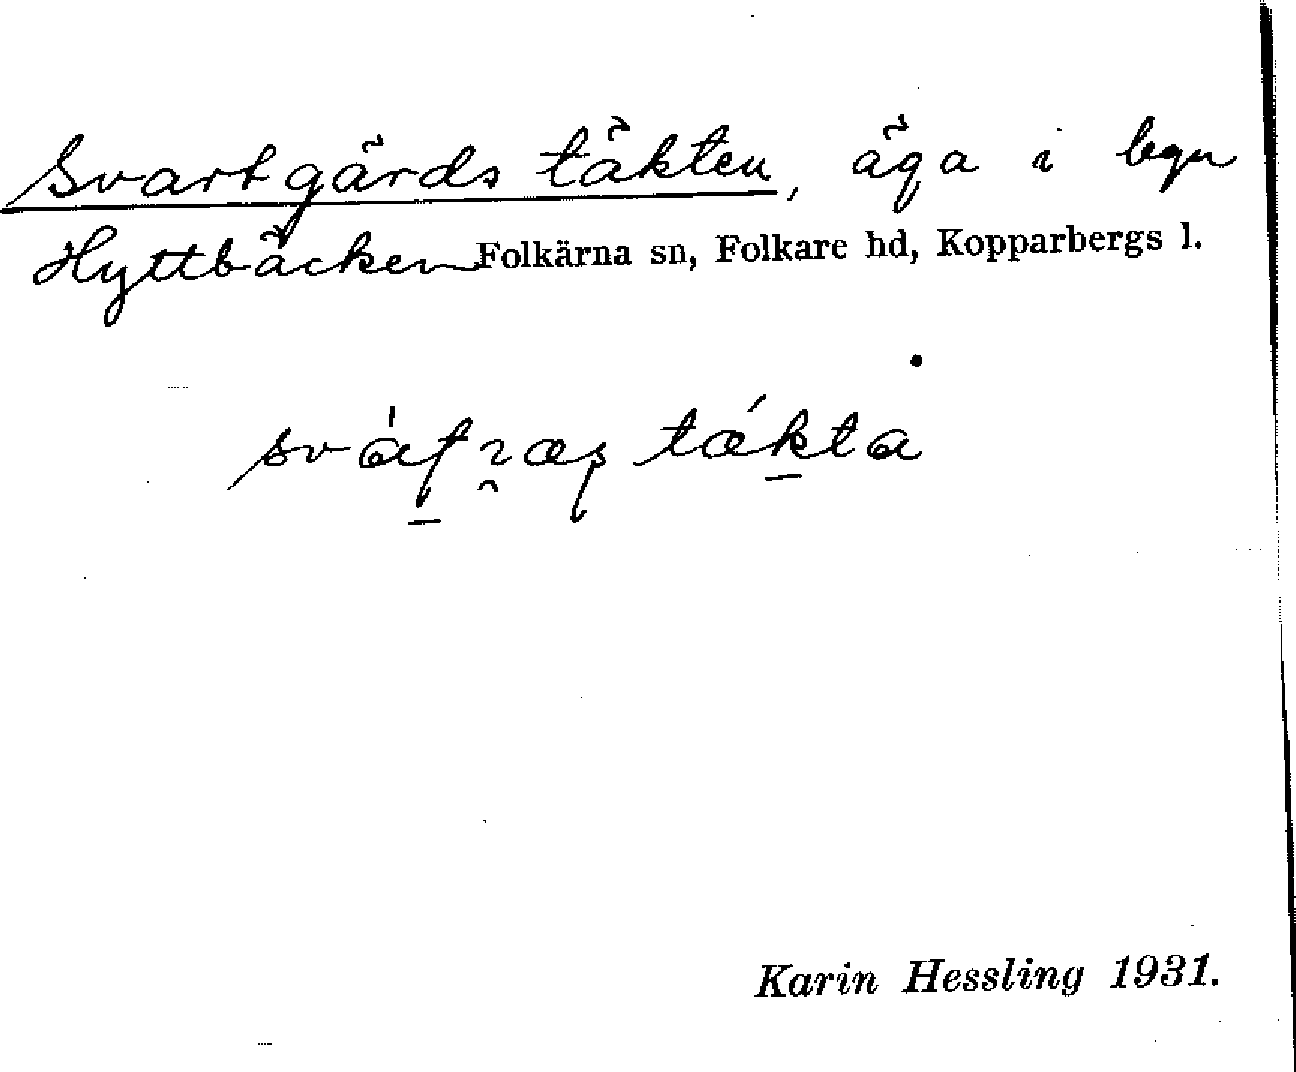 Svartgärds täkten, äga i byn
Hyttbäcken Folkärna sn, Folkare hd, Kopparbergs l.
Karin Hessling 1931.